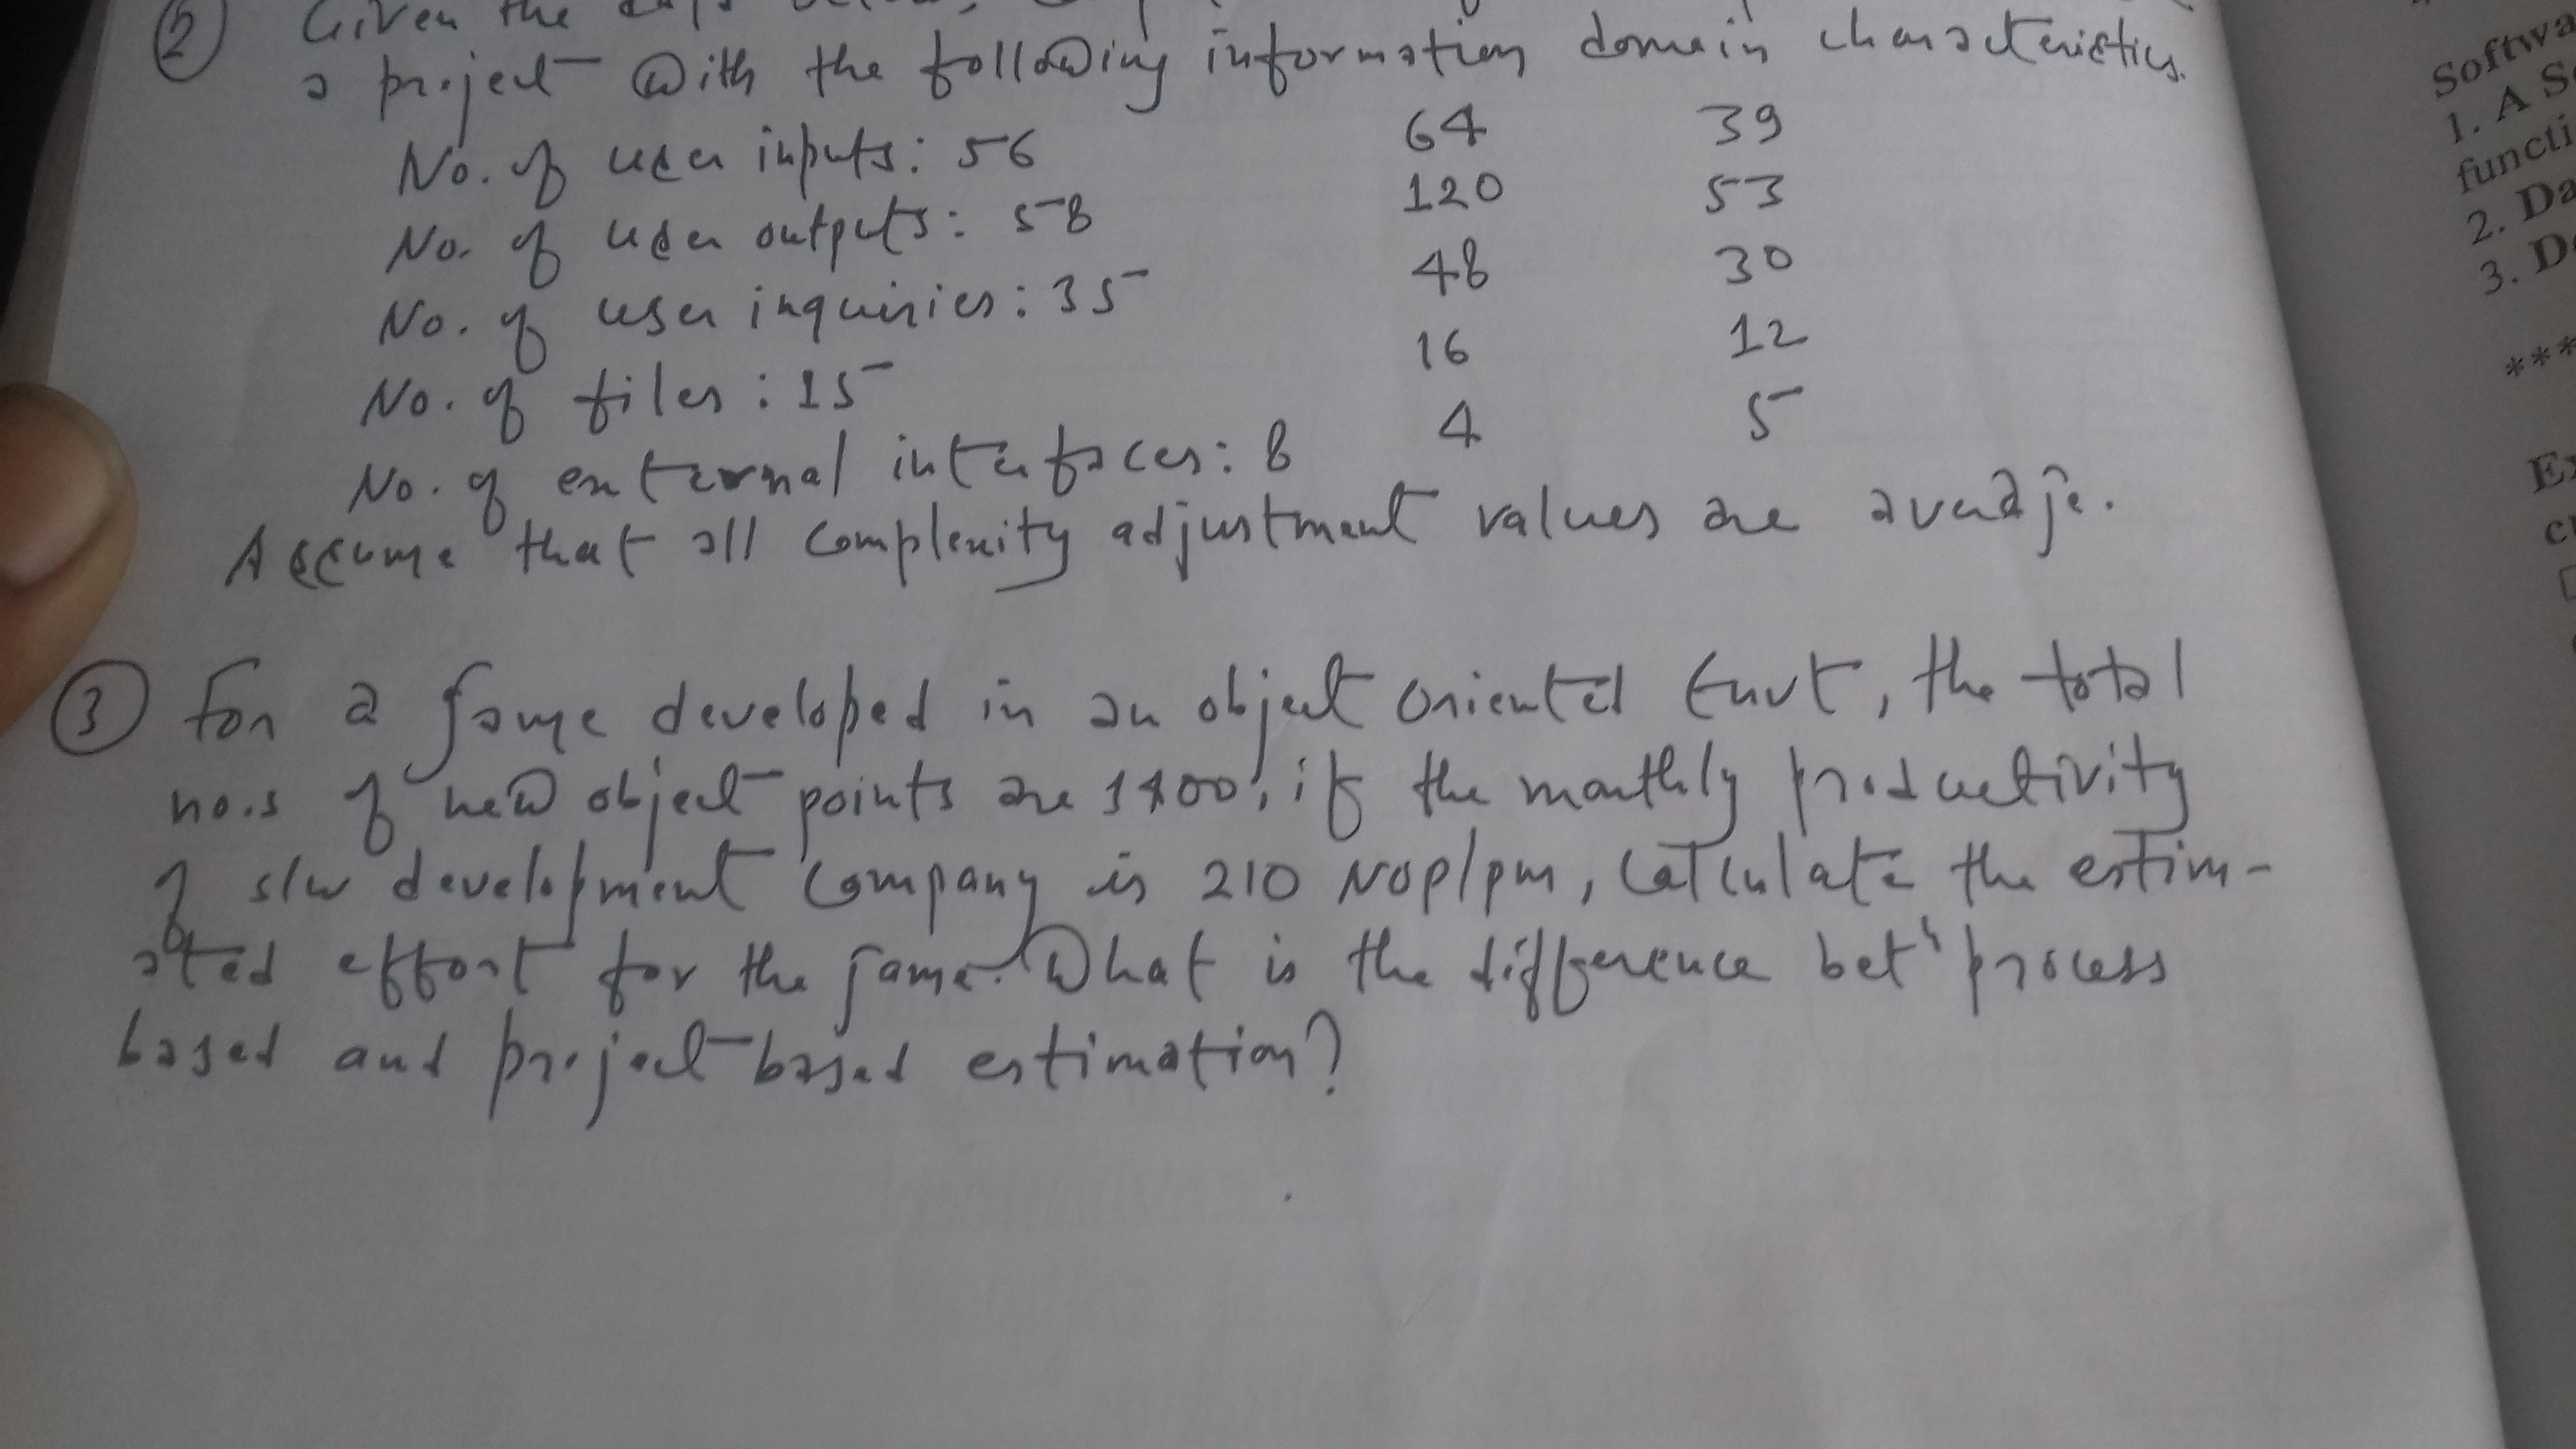 ② Given the
a project with the following information domain characteristics.
No. of user inputs: 56 64 39
No. of user outputs: 58 120 53
No. of user inquiries: 35 48 30
No. of files: 15 16 12
No. of external interfaces: 8 4 5
Assume that all complexity adjustment values are average.
③ For a game developed in an object oriented Envt, the total
no.s of new object points are 1400, if the monthly productivity
of s/w development company is 210 NOP/pm, calculate the estim-
ated effort for the game. What is the difference betn process
based and project based estimation?
Softwa
1. A S
functi
2. Da
3. D
***
Ex